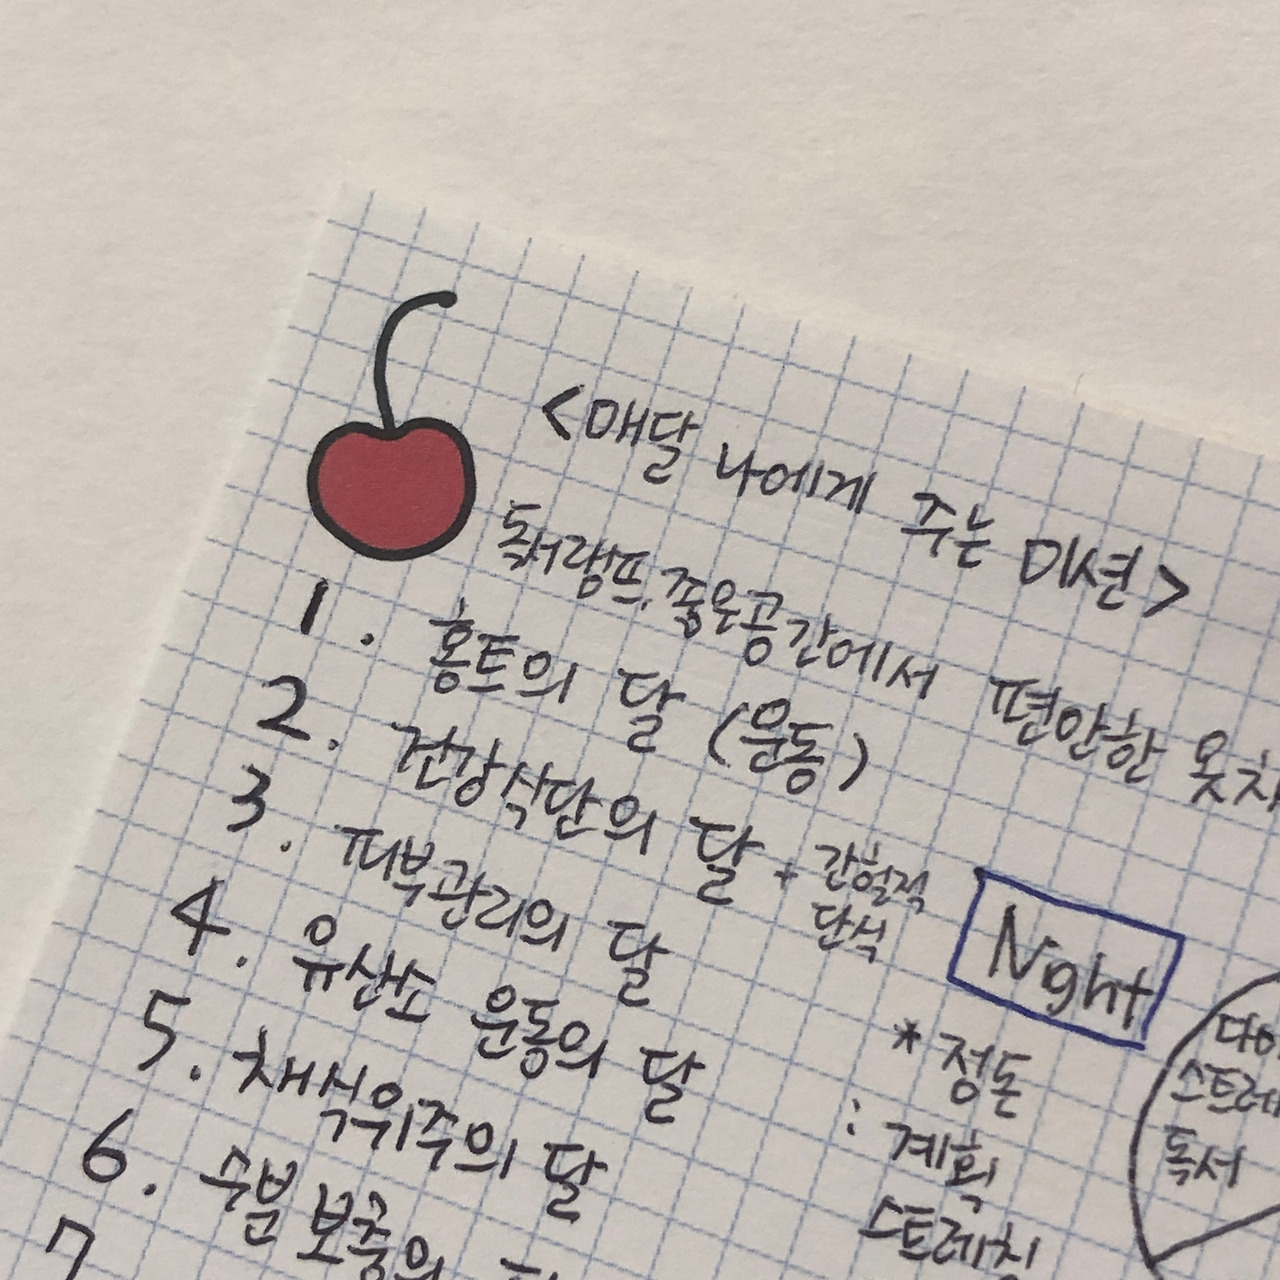 <매달 나에게 주는 미션>
독서램프, 좁은공간에서 편안한 옷차
1. 홈트의 달 (운동)
2. 건강식단의 달 + 간헐적 단식
3. 피부관리의 달
4. 유산소 운동의 달
5. 채식위주의 달
6. 수분 보충의
7
Night
* 정돈
: 계획
스트레칭
다이
스트레
독서